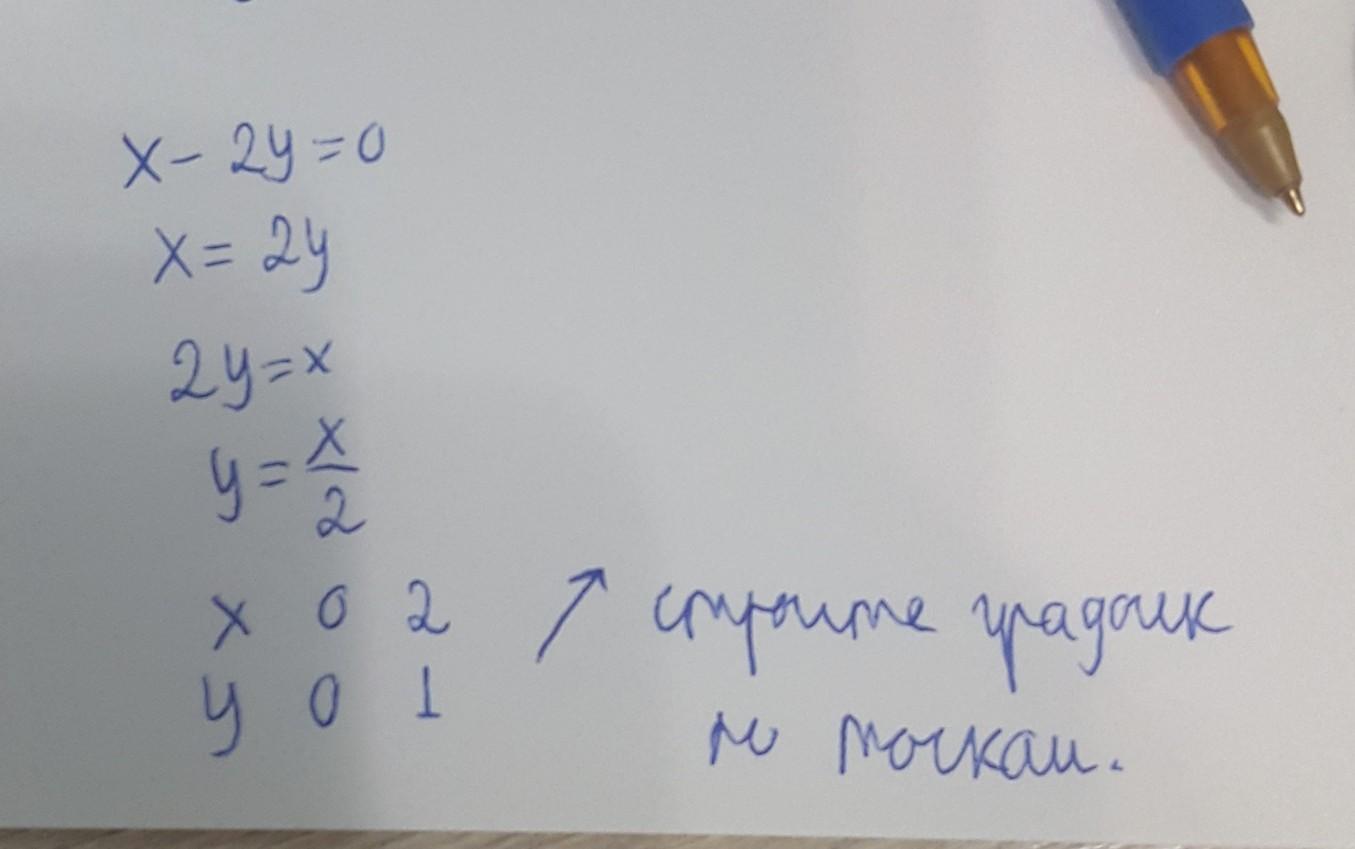 x - 2y = 0
x = 2y
2y = x
y = x/2
x 0 2 ↗ стройте график
y 0 1 по точкам.